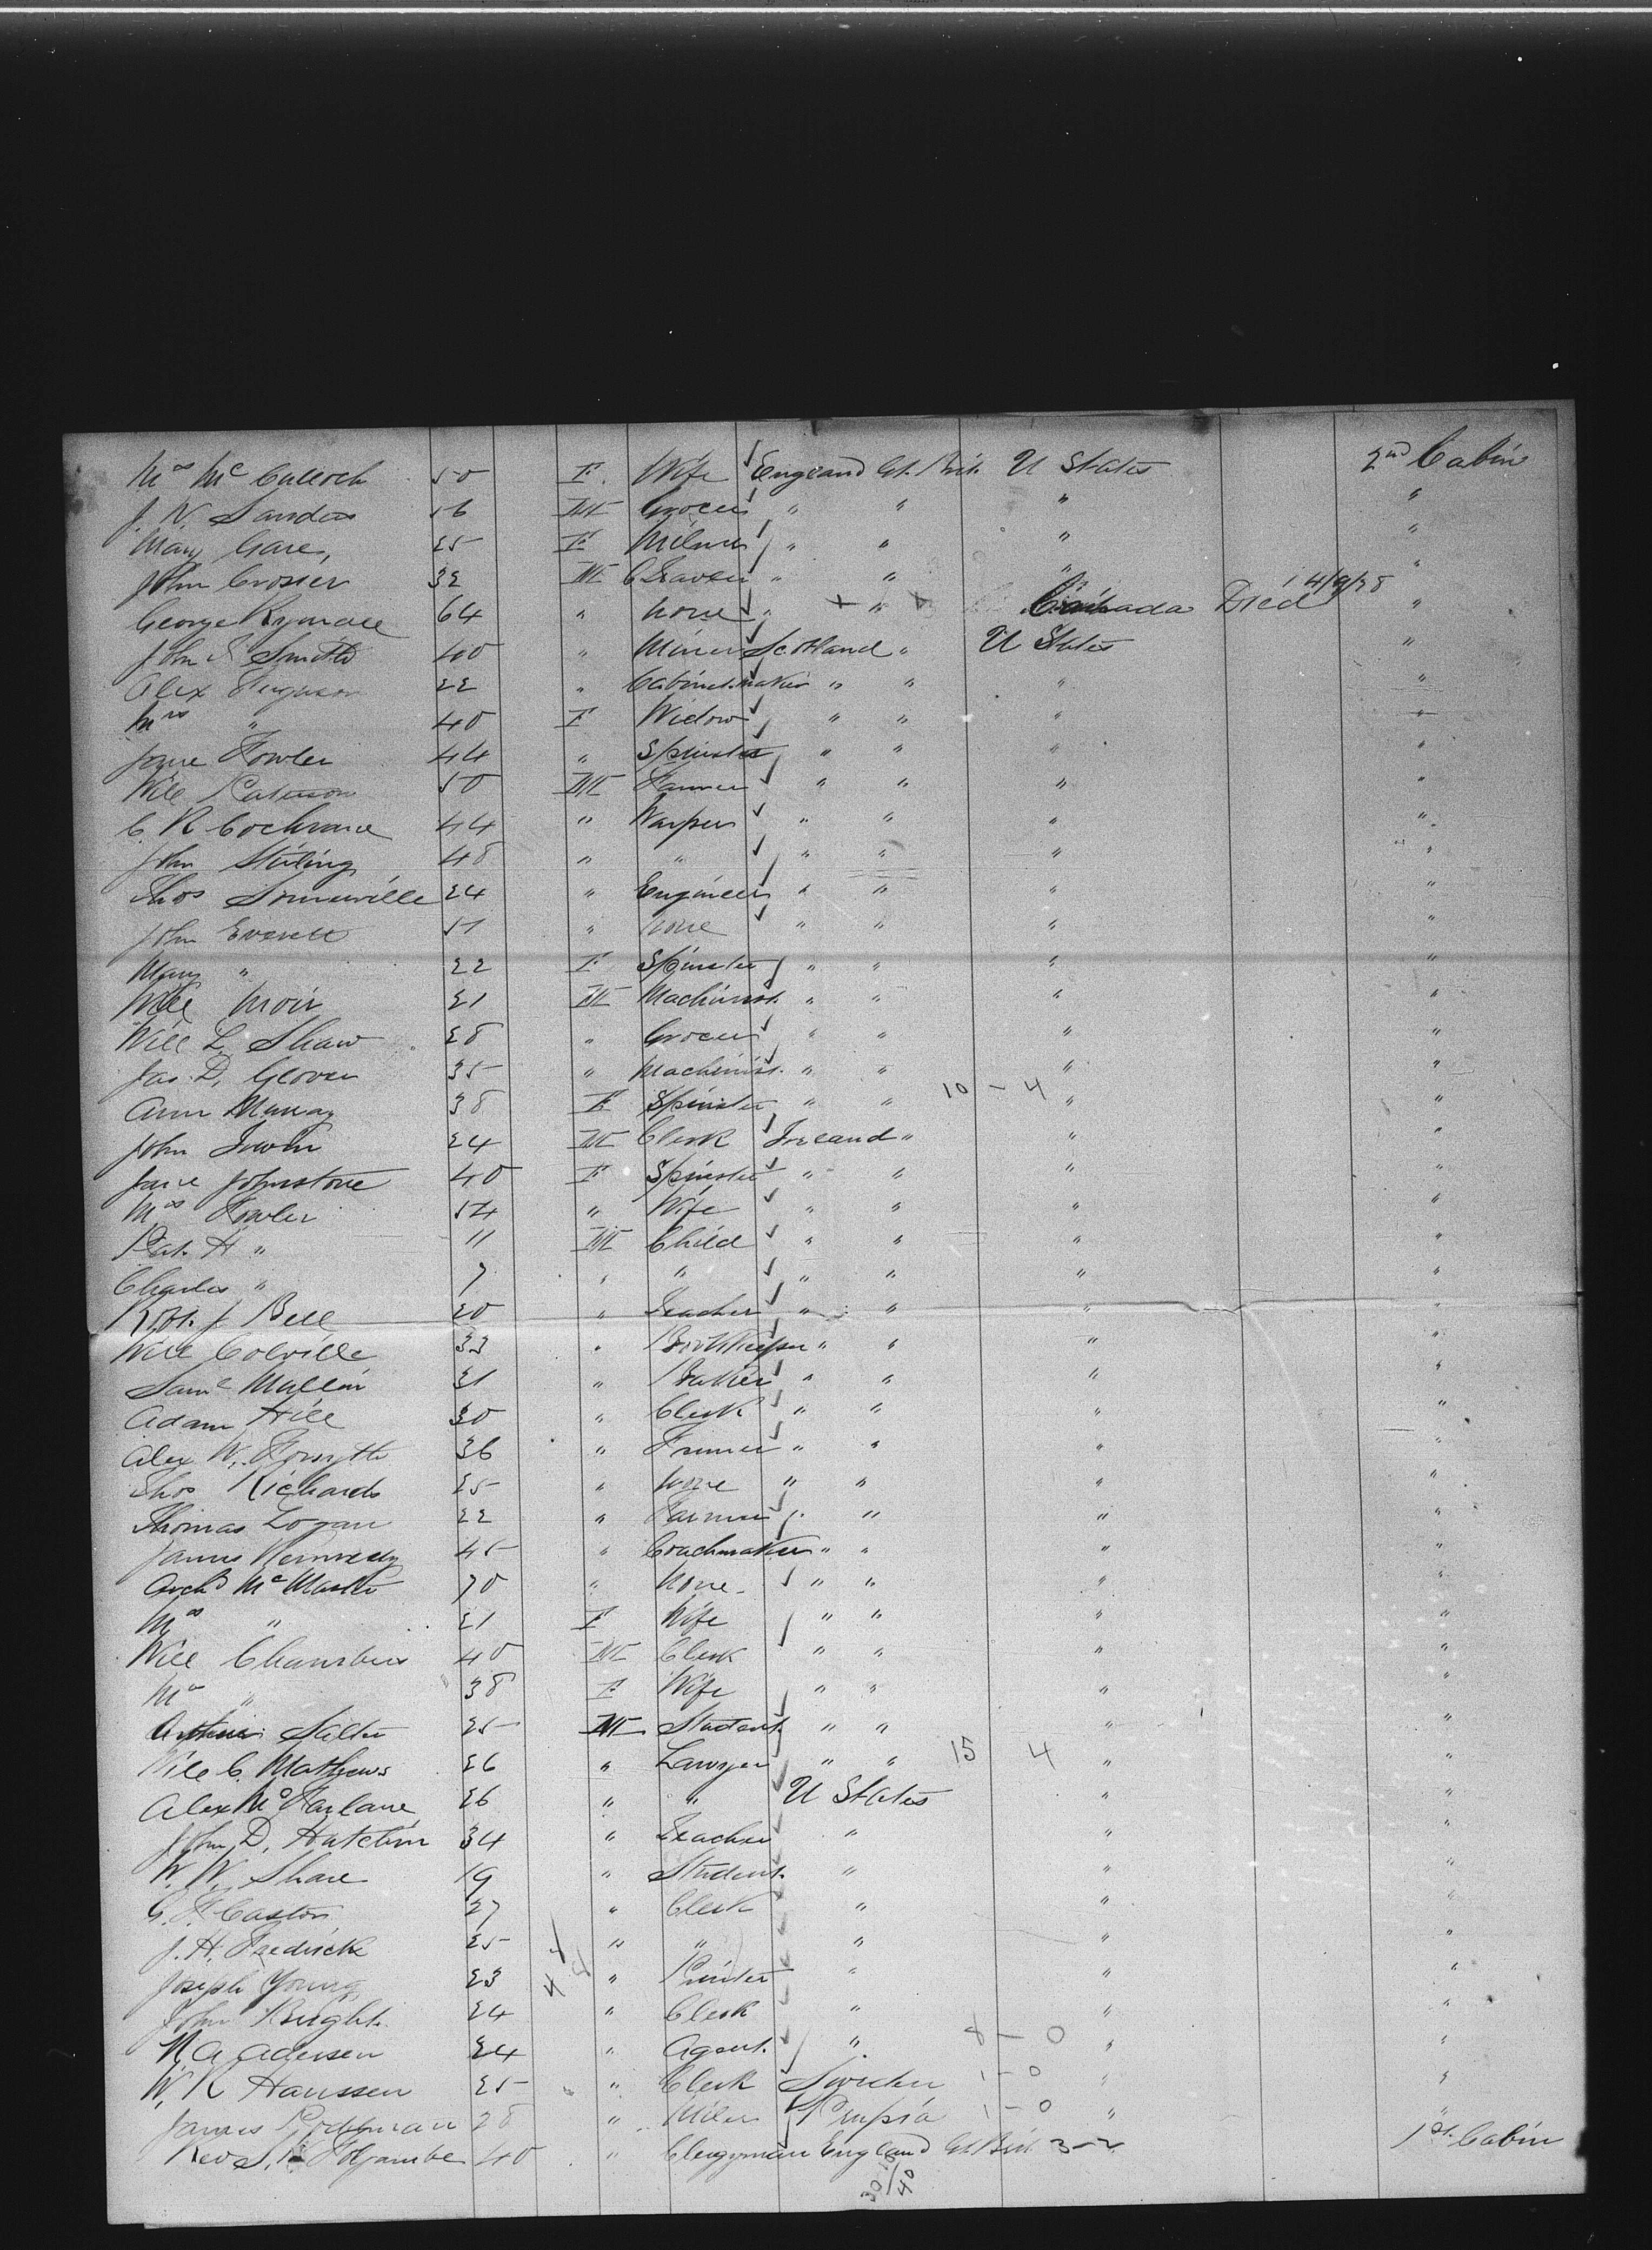 Mrs Mc Culloch 50 F. Wife England Gt. Brit. U States 2nd Cabin
J. W. Sanders 56 M Grocer " " " "
Mary Gare, 25 F Milner " " " "
John Crosier 32 M " " " "
George Rymall 64 " None " + " + Canada Died 4/9/88 "
John Smith 40 " Miner Scotland " U States "
Alex Ferguson 22 " Cabinetmaker " " " "
Mrs " 40 F Widow " " " "
Jane Fowler 44 " Spinster " " " "
Will Paterson 50 M Farmer " " " "
C. R Cochrane 44 " Warper " " " "
John Stirling 48 " " " " " "
Thos Somerville 24 " Engineer " " " "
John Everett 51 " None " " " "
Mary " 22 F Spinster " " " "
Will Moir 21 M Machinist. " " " "
Will L. Shaw 28 " Grocer " " " "
Jas. D. Glover 35 " Machinist. " " " "
Ann Murray 38 F Spinster " " 10 - 4 " "
John Irwin 24 M Clerk Ireland " " "
Jane Johnstone 40 F Spinster " " " "
Mrs Fowler 54 " Wife " " " "
Pat. H " 11 M Child " " " "
Charles " 7 " " " " " "
Robt. J Bell 20 " Teacher " " " "
Will Colville 33 " Bookkeeper " " " "
Saml Mullin 21 " Baker " " " "
Adam Hill 30 " Clerk " " " "
Alex W. Forsyth 36 " Farmer " " " "
Thos Richards 25 " None " " " "
Thomas Logan 22 " Farmer " " " "
James Kennedy 45 " Coachmaker " " " "
Archd McMaster 70 " None " " " "
Mrs " 21 F Wife " " " "
Will Chambers 40 M Clerk " " " "
Mrs " 38 F Wife " " " "
Arthur Salter 25 M Student " " " "
Will C. Mathews 26 " Lawyer " " 15 4 " "
Alex McFarlane 26 " " U States " "
John D. Hutchin 34 " Teacher " " "
W. W. Share 19 " Student. " " "
G. F. Caston 27 " Clerk " " "
J. H. Fredrick 25 " " " " "
Joseph Young 23 4 " Printer " " "
John Knight. 24 " Clerk " " "
N. A. Adersen 24 " Agent. " 8 - 0 " "
W. R Hanssen 25 " Clerk Sweden 1 - 0 " "
James 28 " Miler 1 - 0 " "
Rev S. Foljambe 40 " Clergyman England Gt Brit 3 - 2 1st Cabin
30/40